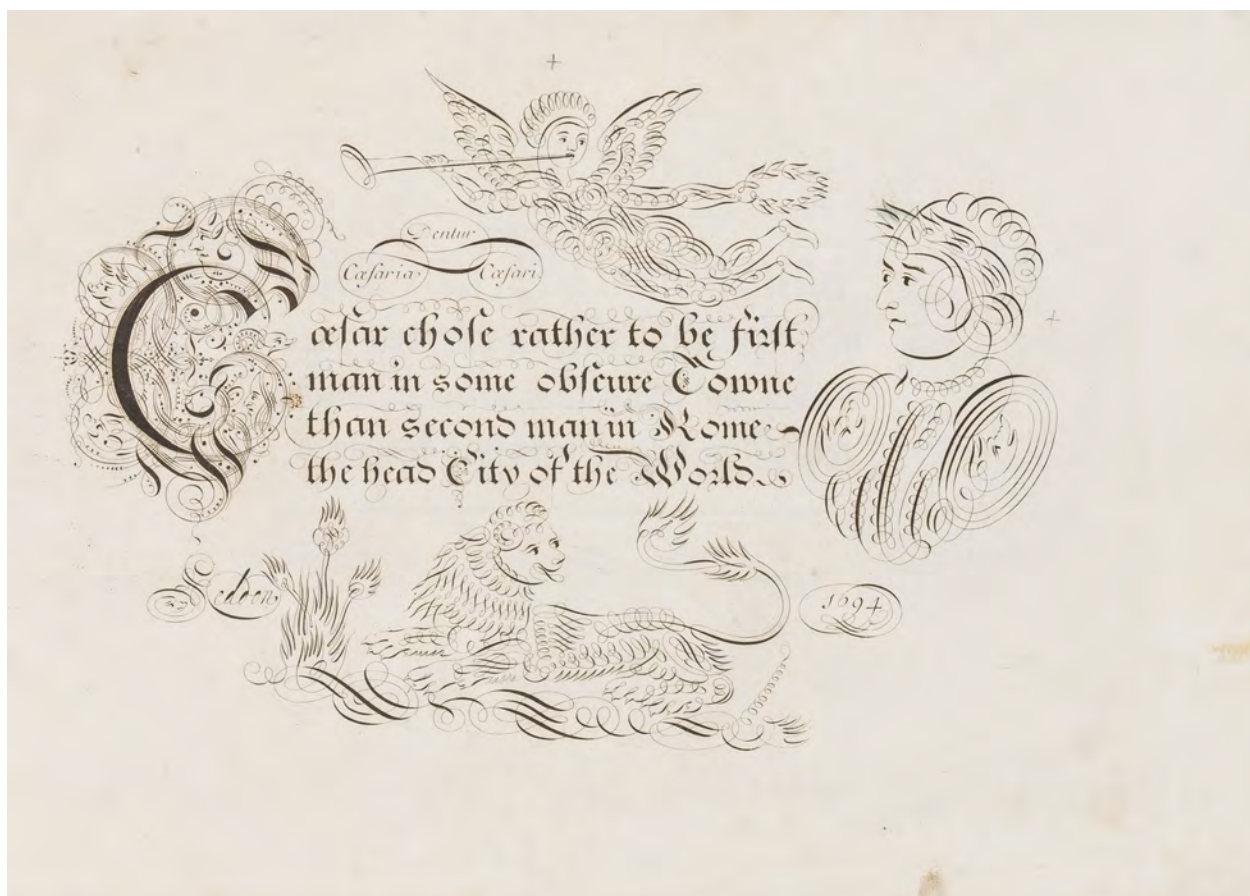 Dentur
Cæsaria Cæsari
Cæſar choſe rather to be firſt
man in some obſcure Towne
than second man in Rome
the head City of the World.
Seddon
1694